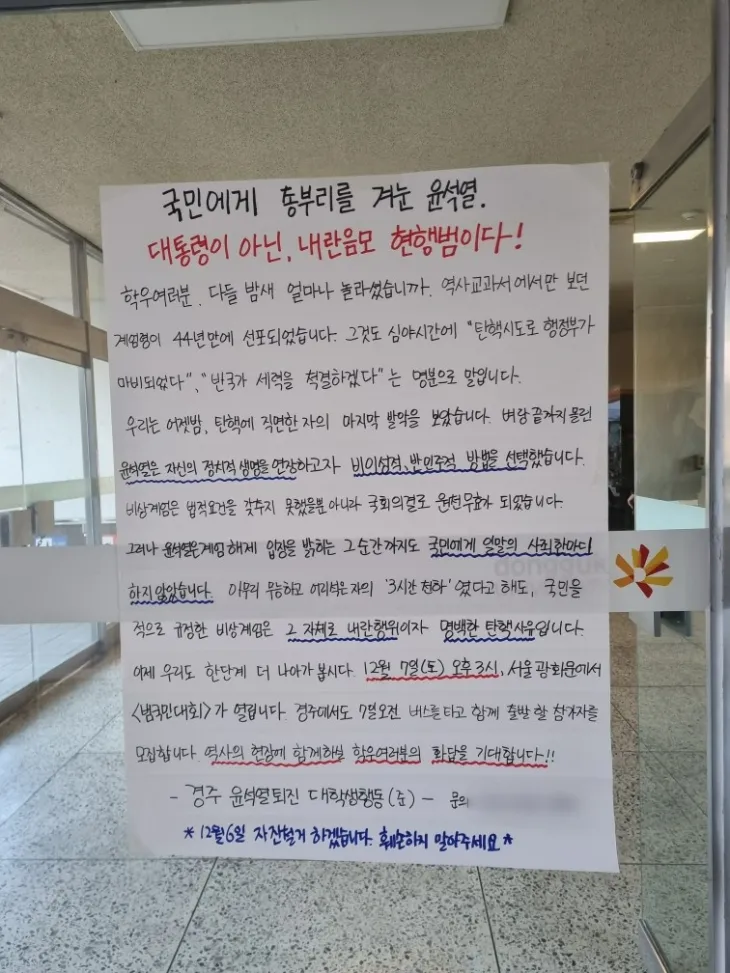 국민에게 총부리를 겨눈 윤석열.
대통령이 아닌, 내란음모 현행범이다!
학우여러분, 다들 밤새 얼마나 놀라셨습니까. 역사교과서에서만 보던
계엄령이 44년만에 선포되었습니다. 그것도 심야시간에 "탄핵시도로 행정부가
마비되었다", "반국가 세력을 척결하겠다"는 명분으로 말입니다.
우리는 어젯밤, 탄핵에 직면한 자의 마지막 발악을 보았습니다. 벼랑 끝까지 몰린
윤석열은 자신의 정치적 생명을 연장하고자 비이성적, 반민주적 방법을 선택했습니다.
비상계엄은 법적요건을 갖추지 못했을뿐 아니라 국회의결로 원천무효가 되었습니다.
그러나 윤석열은 계엄 해제 입장을 밝히는 그 순간까지도 국민에게 일말의 사죄 한마디
하지 않았습니다. 아무리 무능하고 어리석은 자의 '3시간 천하'였다고 해도, 국민을
적으로 규정한 비상계엄은 그 자체로 내란행위이자 명백한 탄핵사유입니다.
이제 우리도 한단계 더 나아가 봅시다. 12월 7일(토) 오후 3시, 서울 광화문에서
<범국민대회>가 열립니다. 경주에서도 7일오전 버스를 타고 함께 출발 할 참가자를
모집합니다. 역사의 현장에 함께하실 학우여러분의 화답을 기대합니다!!
- 경주 윤석열퇴진 대학생행동(준) - 문의
*12월6일 자진철거 하겠습니다. 훼손하지 말아주세요*
dongguk